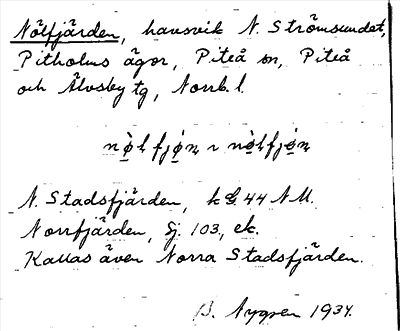 Nölfjärden, havsvik N. Strömsundet,
Pitholms ägor, Piteå sn, Piteå
och Älvsby tg, Norrb. l.
N. Stadsfjärden, k 44 NM.
Norrfjärden, Sj. 103, ek.
Kallas även Norra Stadsfjärden.
B. Nygren 1934.